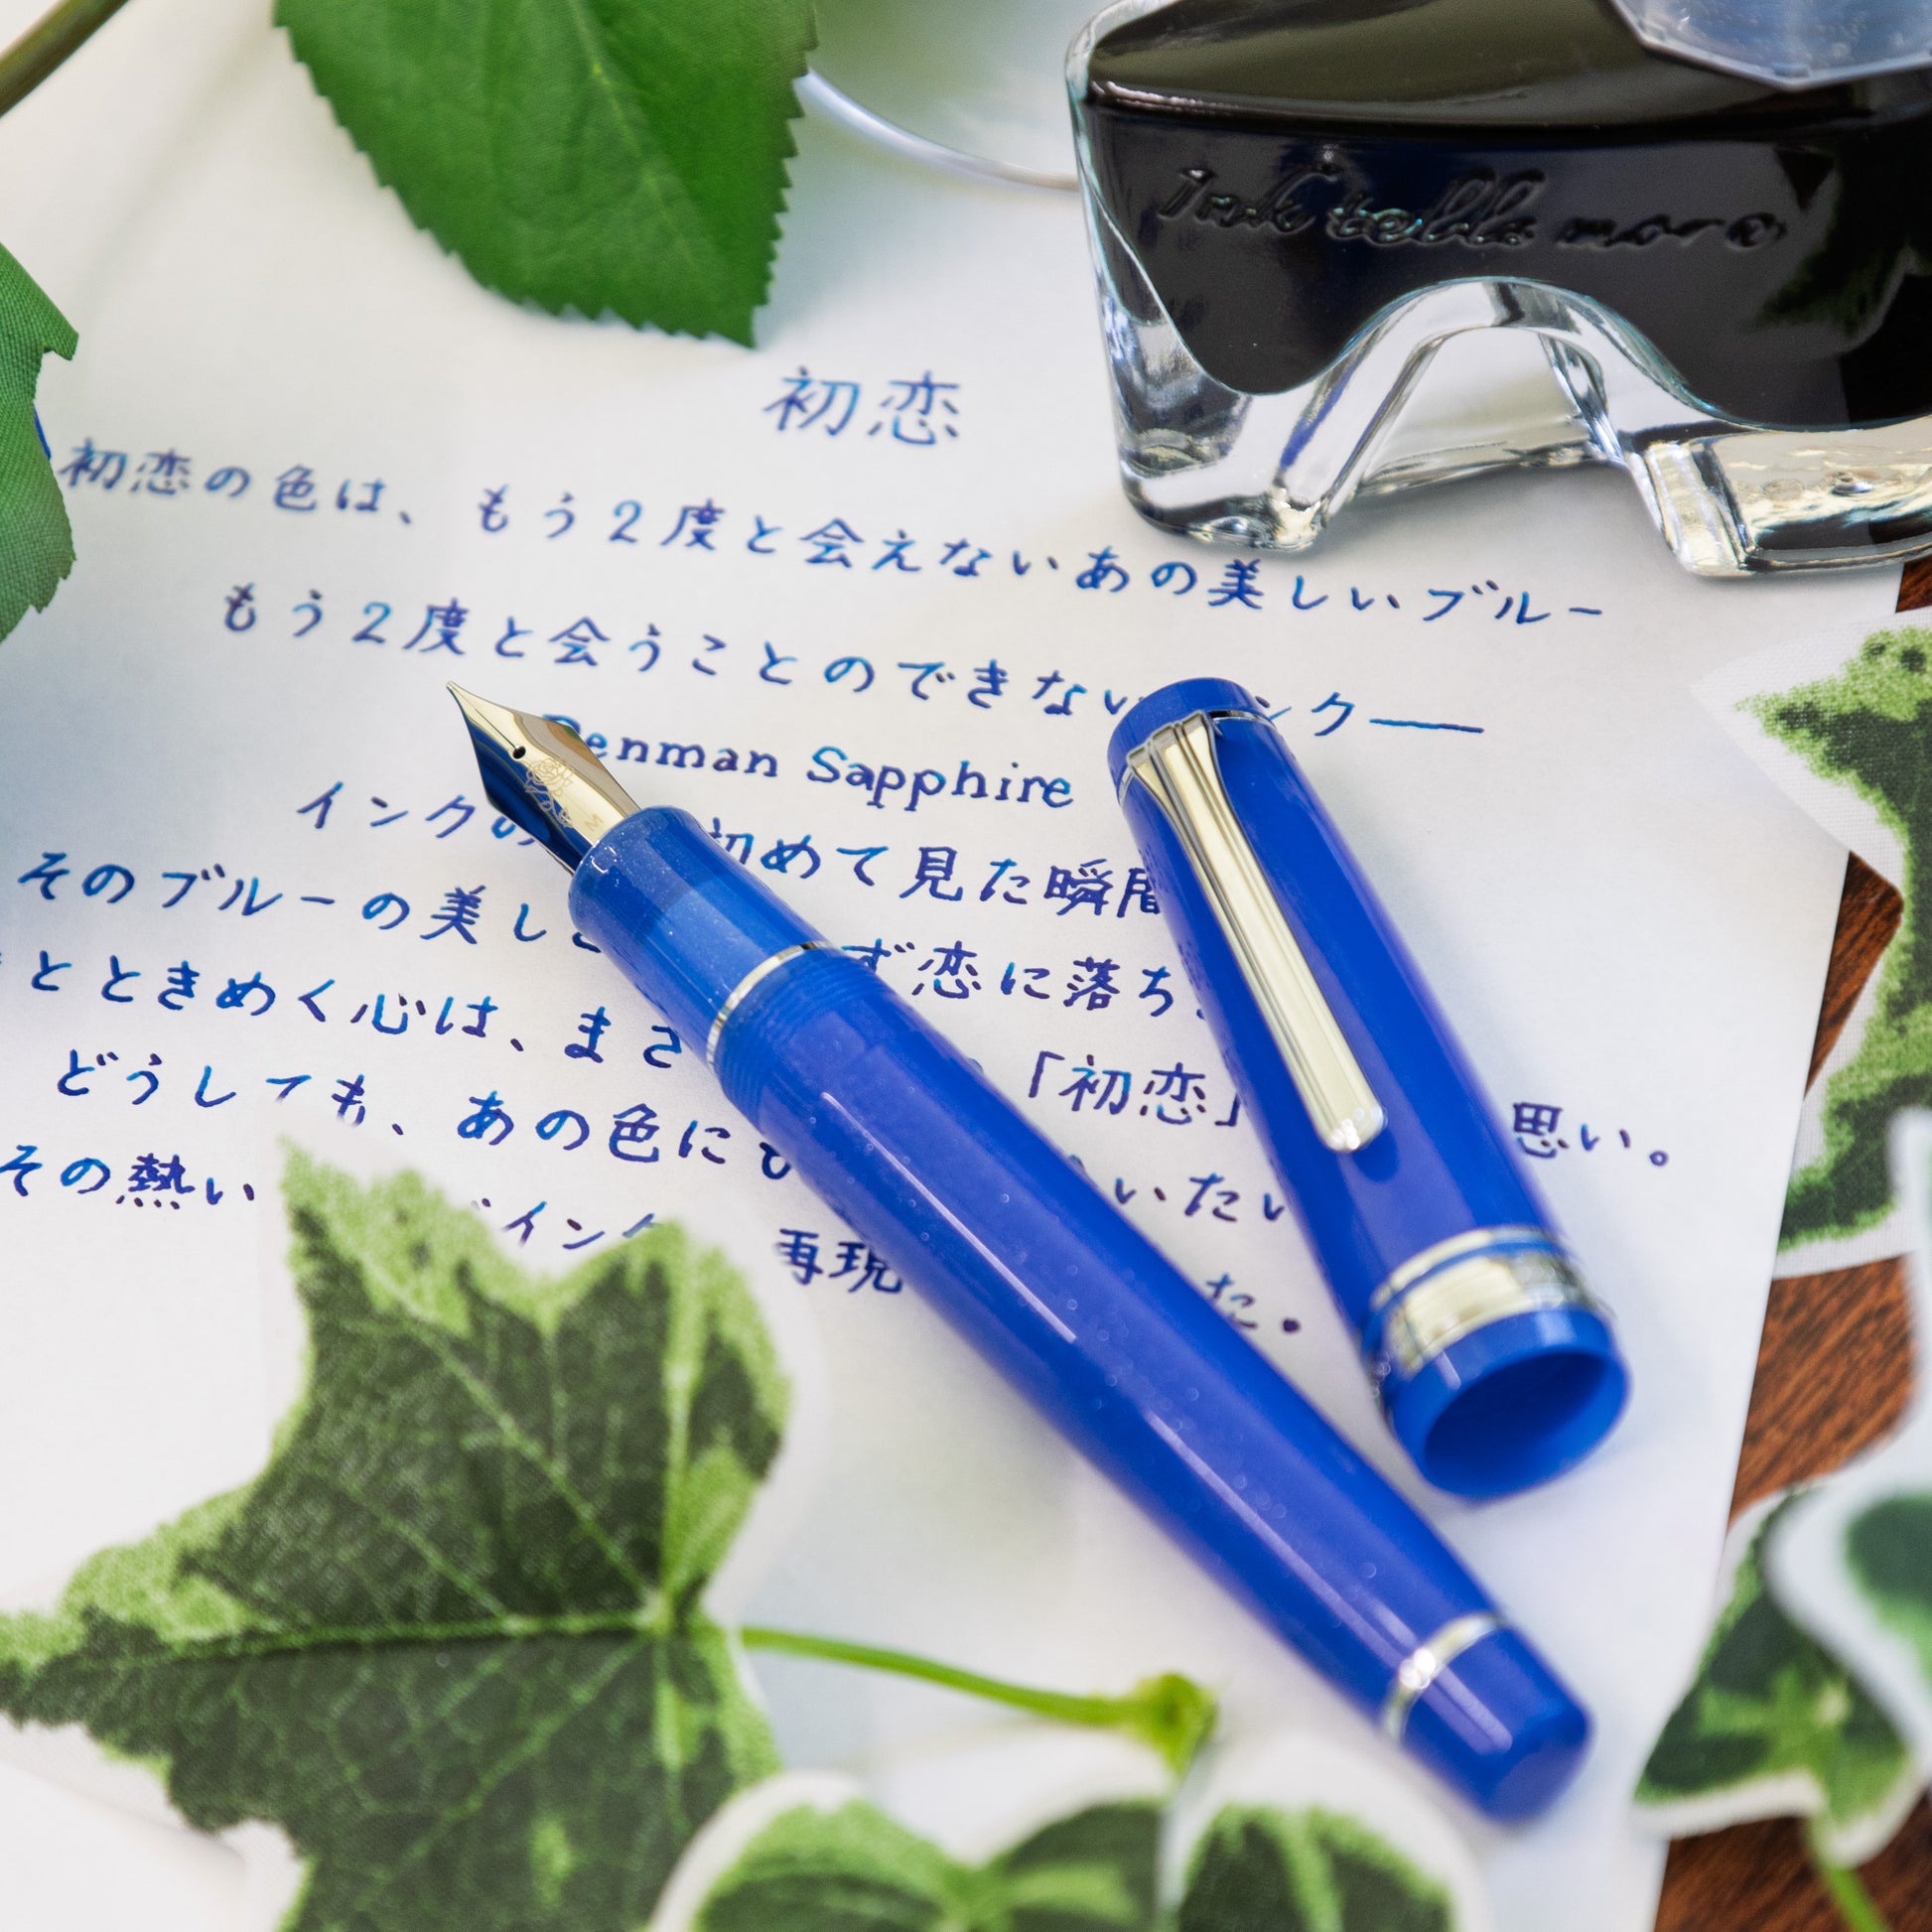 Ink tells more
初恋
初恋の色は、もう2度と会えないあの美しいブルー
もう2度と会うことのできない ンク——
Penman Sapphire
インクの 初めて見た瞬間
そのブルーの美しさ ず恋に落ち
とときめく心は、まさ 「初恋」 思い。
どうしても、あの色に いたい
その熱い インク 再現 た。
M